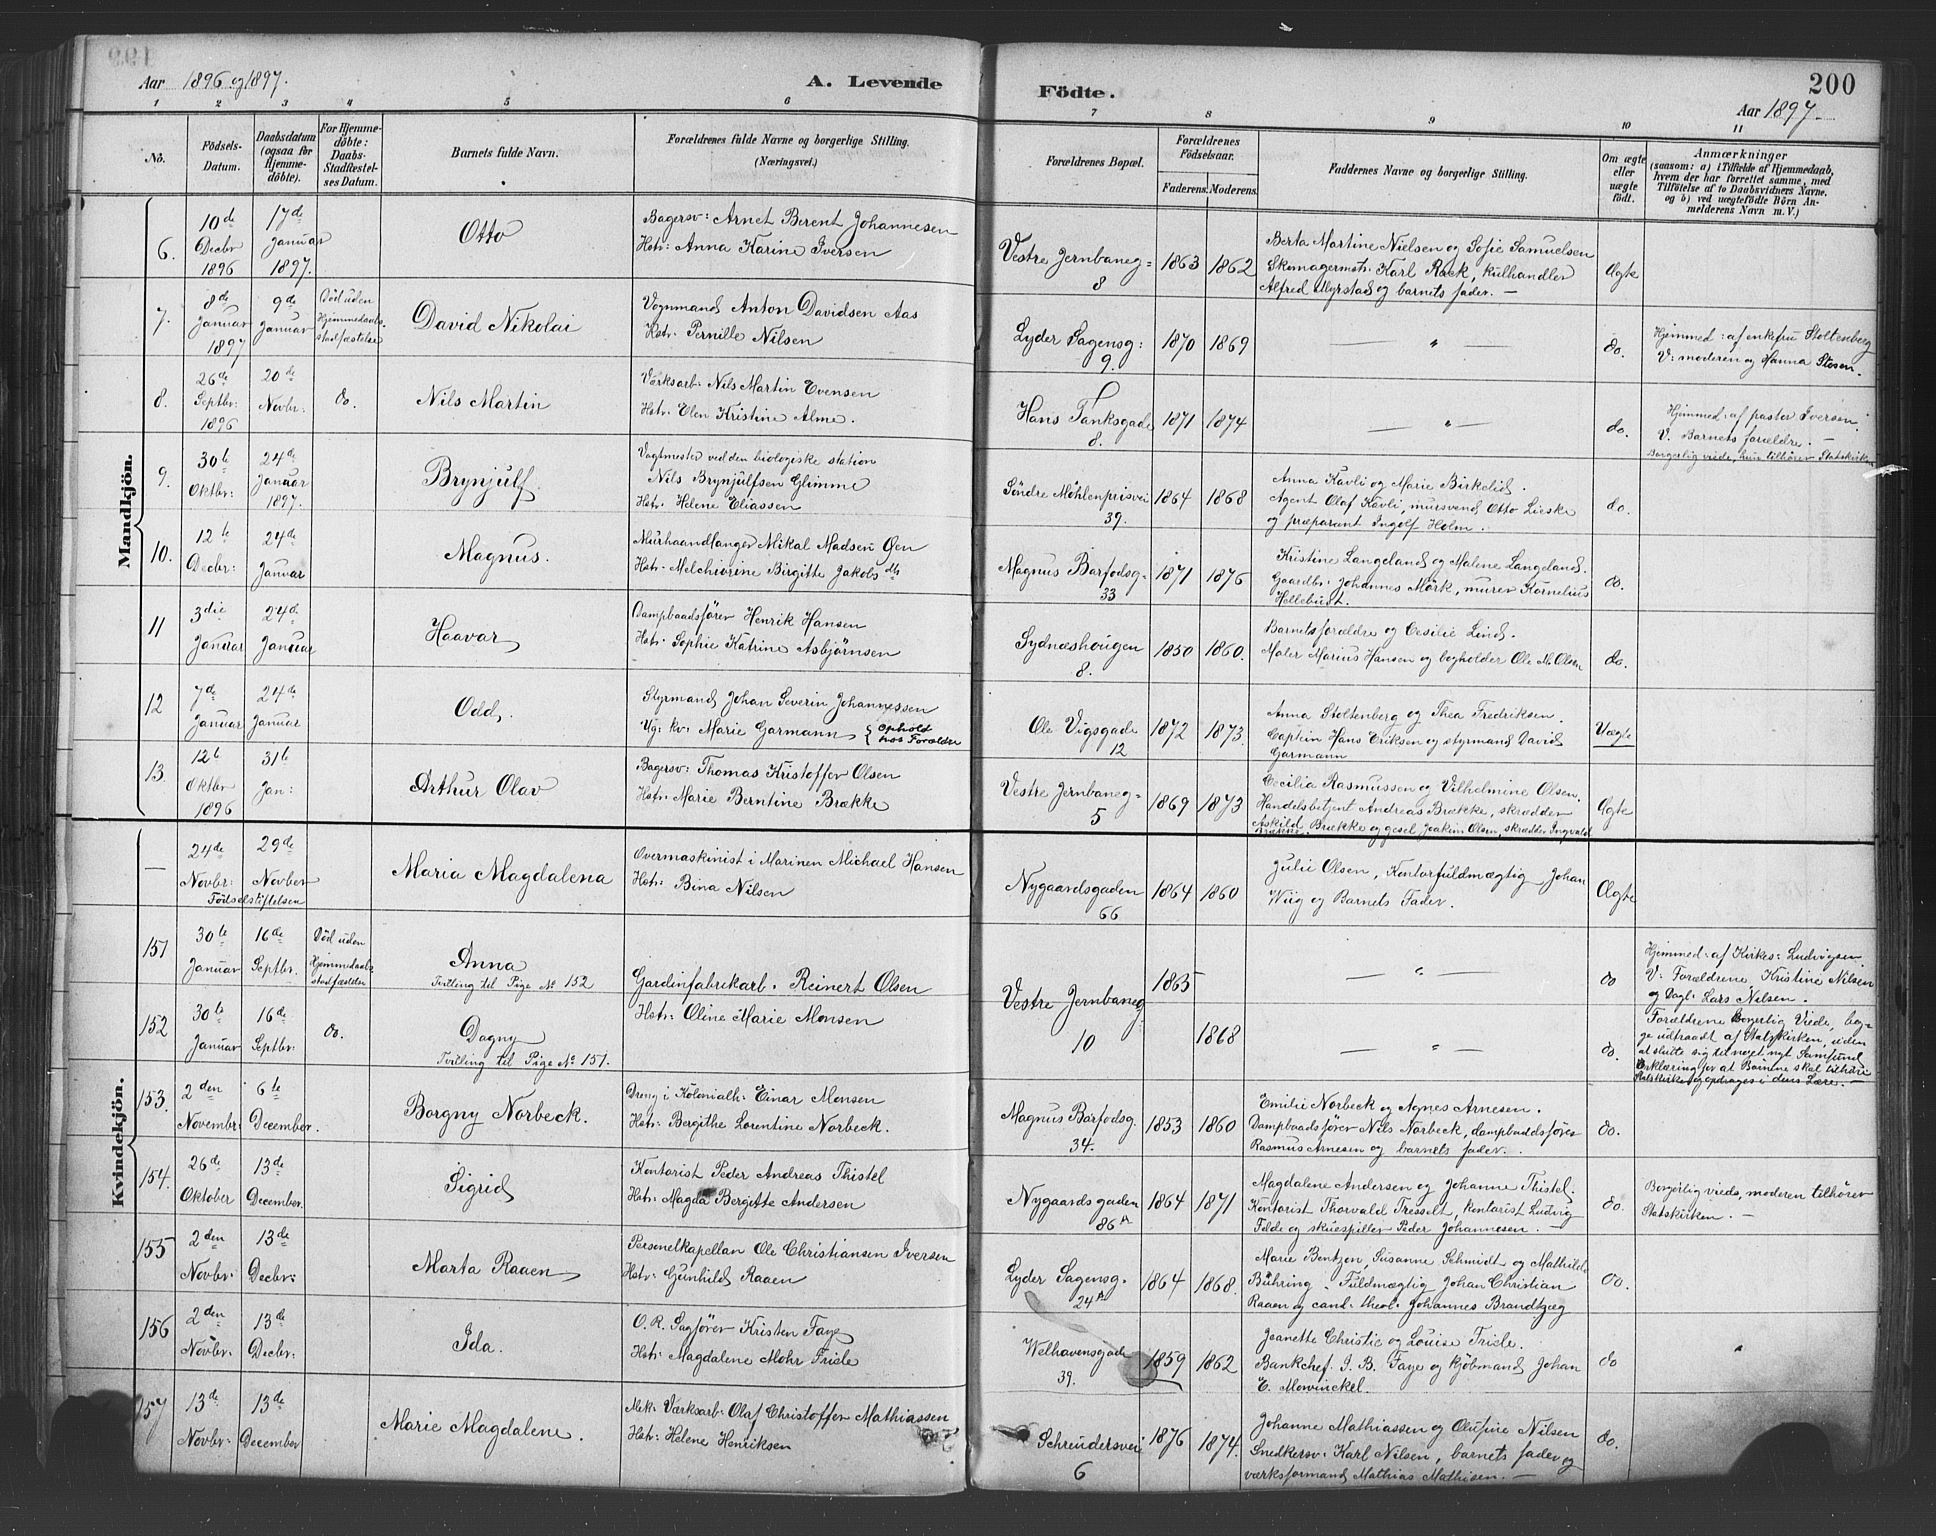 Aar 1896 og 1897.
A. Levende
Födte.
200
Aar 1897
1 2 3 4 5 6 7 8 9 10 11
No.
Födsels-Datum.
Daabsdatum (ogsaa for Hjemmedöbte).
For Hjemmedöbte: Daabs-Stadfæstelses Datum.
Barnets fulde Navn.
Forældrenes fulde Navne og borgerlige Stilling. (Næringsvei.)
Forældrenes Bopæl.
Forældrenes Födselsaar.
Faderens. Moderens.
Faddernes Navne og borgerlige Stilling.
Om ægte eller uægte födt.
Anmærkninger
(saasom: a) i Tilfælde af Hjemmedaab, hvem der har forrettet samme, med Tilföielse af to Daabsvidners Navne, og b) ved uægtefödte Börn Anmelderens Navn m. V.)
Mandkjön.
6. 10de Decbr 1896 17de Januar 1897. Otto
Bagersv: Arnet Berent Johannesen
Hstr: Anna Karine Iversen
Vestre Jernbaneg= 8 1863 1862
Berta Martine Nielsen og Sofie Samuelsen
Skomagermstr: Karl Rack, kulhandler
Alfred Myrstad og barnets fader. —
Ægte
7. 8de Januar 1897 9de Januar Död uden Hjemmedaabs stadfæstelse David Nikolai
Vognmand Anton Davidsen Aas
Hstr. Pernille Nilsen
Lyder Sagensg: 9. 1870 1869
— " — do.
Hjemmed: af enkefru Stoltenberg
V: moderen og Hanna Stosen.
8. 26de Septbr: 1896 20de Novbr: do. Nils Martin
Værksarb: Nils Martin Evensen
Hstr: Elen Kristine Alme.
Hans Tanksgade 8. 1871 1874
— " — do.
Hjemmed: af pastor Iversen.
V. Barnets forældre. —
Borgerlig viede, hun tilhører Statskirken
9. 30te Oktbr: 24de Januar 1897. Brynjulf
Vagtmester ved den biologiske station
Nils Brynjulfsen Glimme
Hstr: Helene Eliassen
Söndre Möhlenprisvei 39. 1864 1868
Anna Kavli og Marie Birkelid.
Agent Olaf Kavli, mursvend Otto Lieske
og præparant Ingolf Holm.
do.
10. 12te Decbr: 24de Januar Magnus.
Murhaandlanger Mikal Madsen Øen
Hstr: Melchiorine Birgitte Jakobsdtr
Magnus Barfodsg= 33 1871 1876
Kristine Langeland og Malene Langeland.
Gaardbr: Johannes Mörk, murer Kornelius
Hellebust.
do.
11 3die Januar 24de Januar Haavar
Dampbaadsförer Henrik Hansen
Hstr: Sophie Katrine Asbjörnsen
Sydnæshougen 8. 1850 1860.
Barnets forældre og Cesilie Lind.
Maler Marius Hansen og bogholder Ole M. Olsen
do.
12 7de Januar 24de Januar Odd.
Styrmand Johan Severin Johannessen
Ugr. kv: Marie Garmann { Ophold hos Forældre
Ole Vigsgade 12 1872 1873.
Anna Stoltenberg og Thea Fredriksen.
Captein Hans Eriksen og styrmand David
Garmann
Uægte
13. 12te Oktbr 1896 31te Jan: Arthur Olav
Bagersv: Thomas Kristoffer Olsen
Hstr: Marie Berntine Brække
Vestre Jernbaneg= 5 1869 1873
Cecilia Rasmussen og Vilhelmine Olsen.
Handelsbetjent Andreas Brække, skrædder
Askild Brække og gesel Joakim Olsen, skrædder Ingvald Brække
Ægte
Kvindekjön.
— 24de Novbr: 29de Novber Födselsstiftelsen Maria Magdalena
Overmaskinist i Marinen Michael Hansen
Hstr: Bina Nilsen
Nygaardsgaden 66 1864 1860
Julie Olsen, Kontorfuldmægtig Johan
Wiig og Barnets Fader.
Ægte
151 30te Januar 16de Septbr. Död uden Hjemmedaabs stadfæstelse Anna
Tvilling til Pige No 152
Gardinfabrikarb. Reinert Olsen
Hstr: Oline Marie Monsen
Vestre Jernbaneg 10 1865 1868
— " — do
Hjemmed: af Kirkes: Ludvigsen.
V: Forældrene Kristine Nilsen
og Dagl: Lars Nilsen.
152 30te Januar 16de Septbr: do. Dagny
Tvilling til Pige No 151.
— " — do.
Forældrene Borgerlig Viede, begge
udtraadt af Statskirken, uden
at slutte sig til noget nyt Samfund
Erklæring for at Børnene skal tilhöre
Statskirken og opdrages i dens Lære. —
153. 2den Novembr: 6te December. Borgny Norbeck.
Dreng i Kolonialh: Einar Monsen
Hstr: Bergithe Lorentine Norbeck.
Magnus Barfodsg. 34. 1853 1860
Emilie Norbeck og Agnes Arnesen.
Dampbaadsförer Nils Norbeck, dampbaadsförer
Rasmus Arnesen og barnets fader.
do.
154. 26de Oktober 13de December. Sigrid
Kontorist Peder Andreas Thistel
Hstr: Magda Bergitte Andersen
Nygaardsgaden 86A 1864 1871
Magdalene Andersen og Johanne Thistel.
Kontorist Thorvald Tresselt, kontorist Ludvig
Felde og skuespiller Peder Johannesen. —
do.
Borgerlig viede, moderen tilhører
Statskirken. —
155 2den Novbr: 13de Decbr: Marta Raaen
Personelkapellan Ole Christiansen Iversen
Hstr: Gunhild Raaen
Lyder Sagensg. 24A 1864 1868.
Marie Bentzen, Susanne Schmidt og Mathilde
Bühring. Fuldmægtig Johan Christian
Raaen og cand. theol: Johannes Brandtzæg
do.
156 2den Novbr: 13de Decbr: Ida.
O. R. Sagförer Kristen Faye
Hstr: Magdalene Mohr Friele
Welhavensgade 39. 1859 1862
Jeanette Christie og Louise Friele.
Bankchef. J. B. Faye og kjöbmand Johan
E. Mowinckel.
do
157 13de Novbr: 13de December Marie Magdalene.
Mek: Værksarb: Olaf Christoffer Mathiassen
Hstr: Helene Henriksen
Schreudersvei 6 1876 1874.
Johanne Mathiassen og Olufine Nilsen
Snedkersv: Karl Nilsen, barnets fader og
værksformand Mathias Mathisen. —
do.